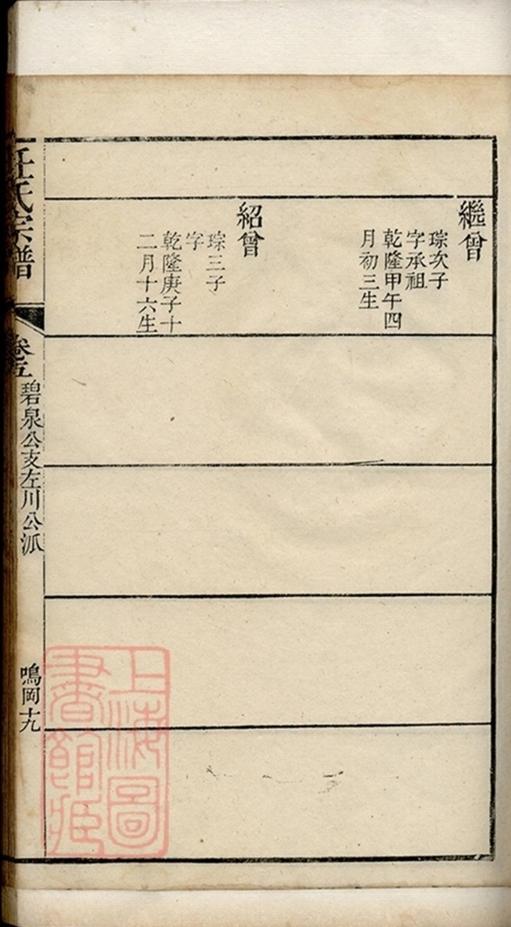 繼曾
琮次子
字承祖
乾隆甲午四
月初三生
紹曾
琮三子
字
乾隆庚子十
二月十六生
任氏宗譜
卷五
碧泉公支左川公派
鳴岡
十九
上海圖
書館藏